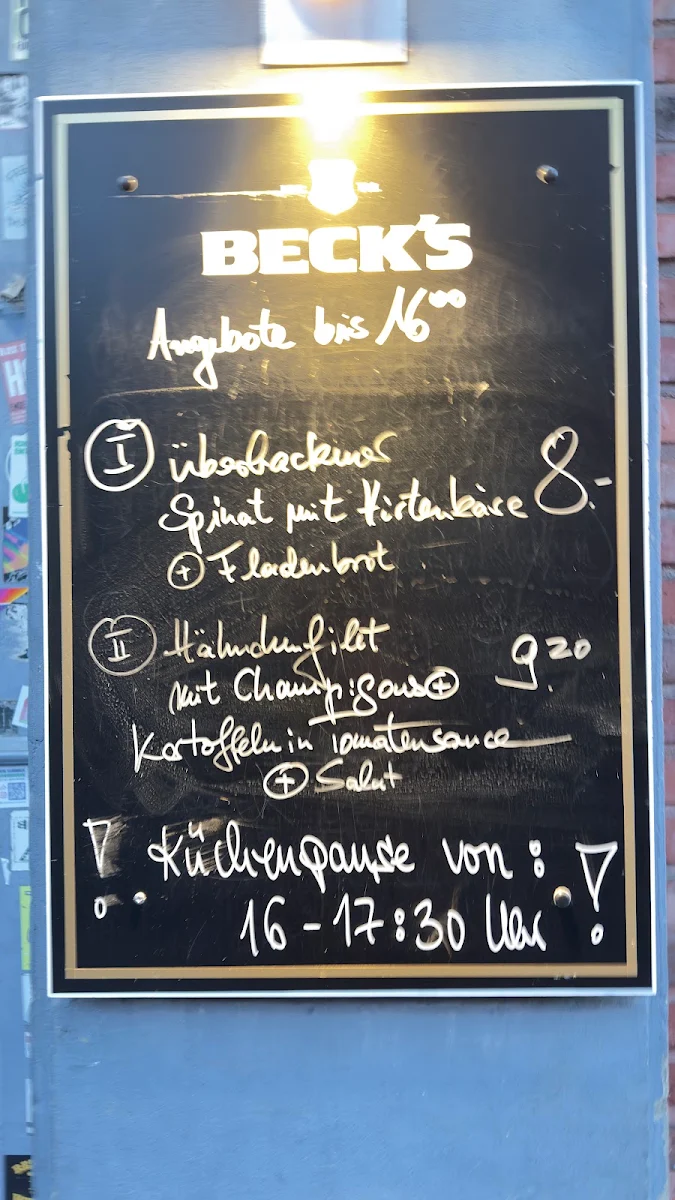 BECK'S
Angebote bis 16⁰⁰
I überbackener
Spinat mit Hirtenkäse 8.-
+ Fladenbrot
II Hähnchenfilet
mit Champigons + 9.20
Kartoffeln in Tomatensauce
+ Salat
! Küchenpause von : !
16 - 17:30 Uhr